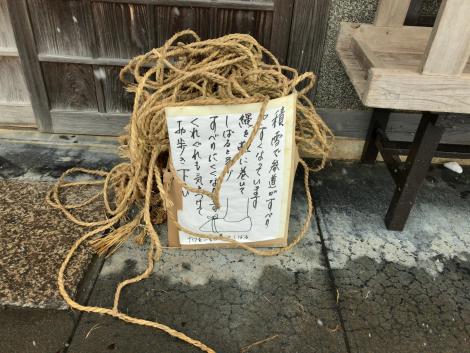 積雪で参道がすべり
やすくなっています
縄を靴に巻いて
しばると多少
すべりにくくなります
くれぐれも気をつけて
お歩き下さい